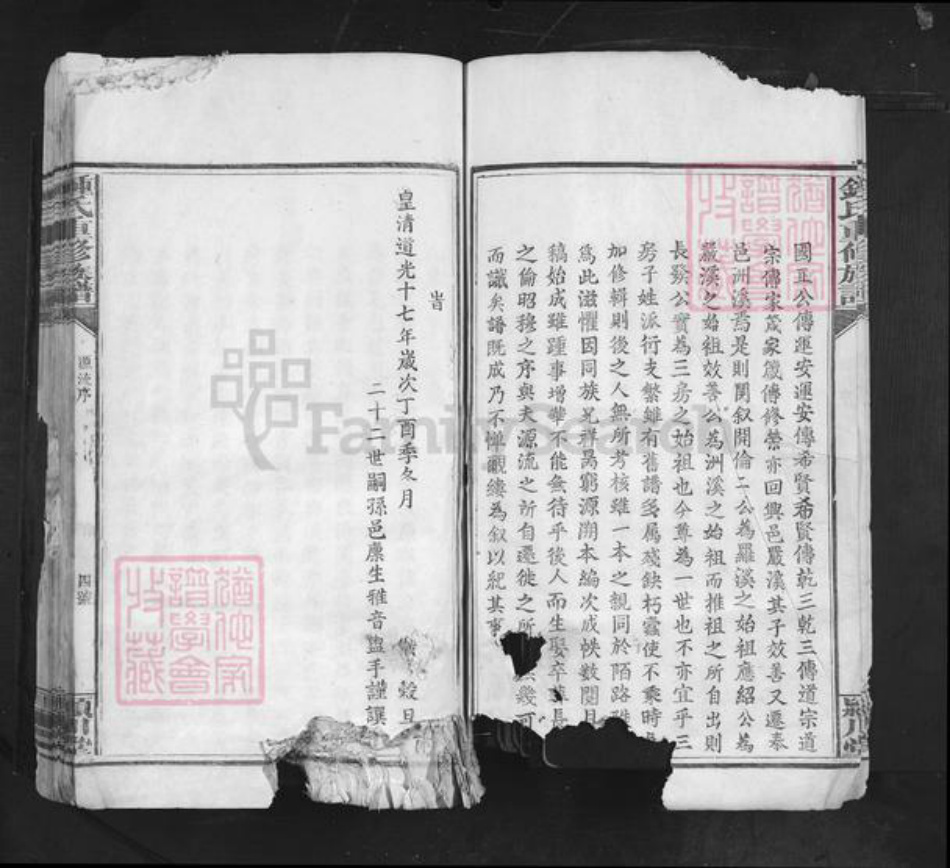 國正公傳運安運安傳希賢希賢傳乾三乾三傳道宗道
宗傳家箴家箴傳修榮亦回興邑嚴溪其子效善又遷泰
邑洲溪焉是則開叙開倫二公為羅溪之始祖應紹公為
嚴溪之始祖效善公為洲溪之始祖而推祖之所自出則
長發公實為三房之始祖也今尊為一世也不亦宜乎三
房子姓派衍支繁雖有舊譜多属殘缺朽蠹使不乘時
加修輯則後之人無所考核雖一本之親同於陌路
為此滋懼因同族兄祥暠窮源溯本編次成帙数閱月
稿始成雖踵事增華不能無待乎後人而生娶卒葬
之倫昭穆之序與夫源流之所自遷徙之所 幾可
而識矣譜既成乃不憚覼縷為叙以紀其事
旹
皇清道光十七年歲次丁酉季冬月 穀旦
二十二世嗣孫邑廩生雅音盥手謹譔
鍾氏重修族譜
源流序
四號
潁川堂
猶他家譜學會收藏
猶他家譜學會收藏
FamilySearch